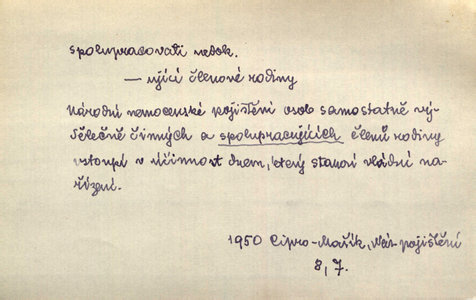 spolupracovati nedok.
— ující členové rodiny
Národní nemocenské pojištění osob samostatně vý-
dělečně činných a spolupracujících členů rodiny
vstoupí v účinnost dnem, který stanoví vládní na-
řízení.
1950 Cipro-Mařík, Nár. pojištění
8, 7.